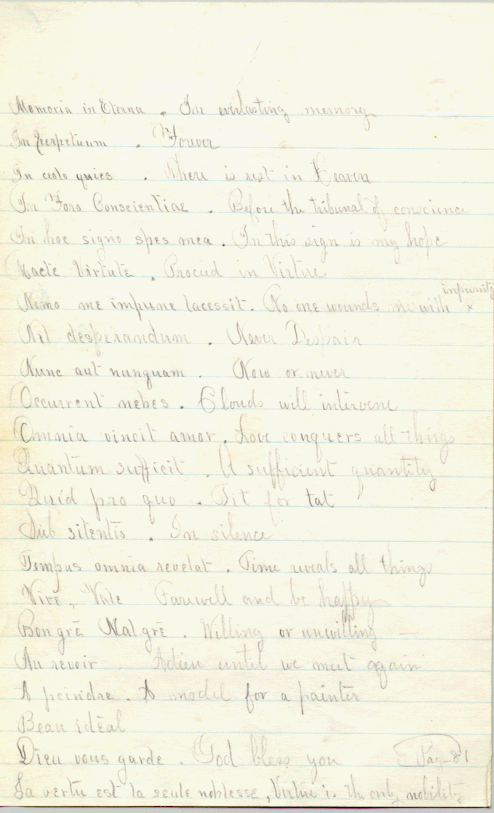 Memoria in Eterna. In everlasting memory
In Perpetuum. Forever
In coelo quies. There is rest in Heaven
In Foro Conscientiae. Before the tribunal of conscience
In hoc signo spes mea. In this sign is my hope
Macte Virtute. Proceed in Virtue
Nemo me impune lacessit. No one wounds me with impunity
Nil desperandum. Never Despair
Nunc aut nunquam. Now or never
Occurrent nebes. Clouds will intervene
Omnia vincit amor. Love conquers all things
Quantum sufficit. A sufficient quantity
Quid pro quo. Tit for tat
Sub silentis. In silence
Tempus omnia revelat. Time reveals all things
Vive, Vale Farewell and be happy
Bon gré Mal gré. Willing or unwilling
Au revoir. Adieu until we meet again
A peindre. A model for a painter
Beau idéal
Dieu vous garde. God bless you Page 81
La vertu est la seule noblesse, Virtue is the only nobility